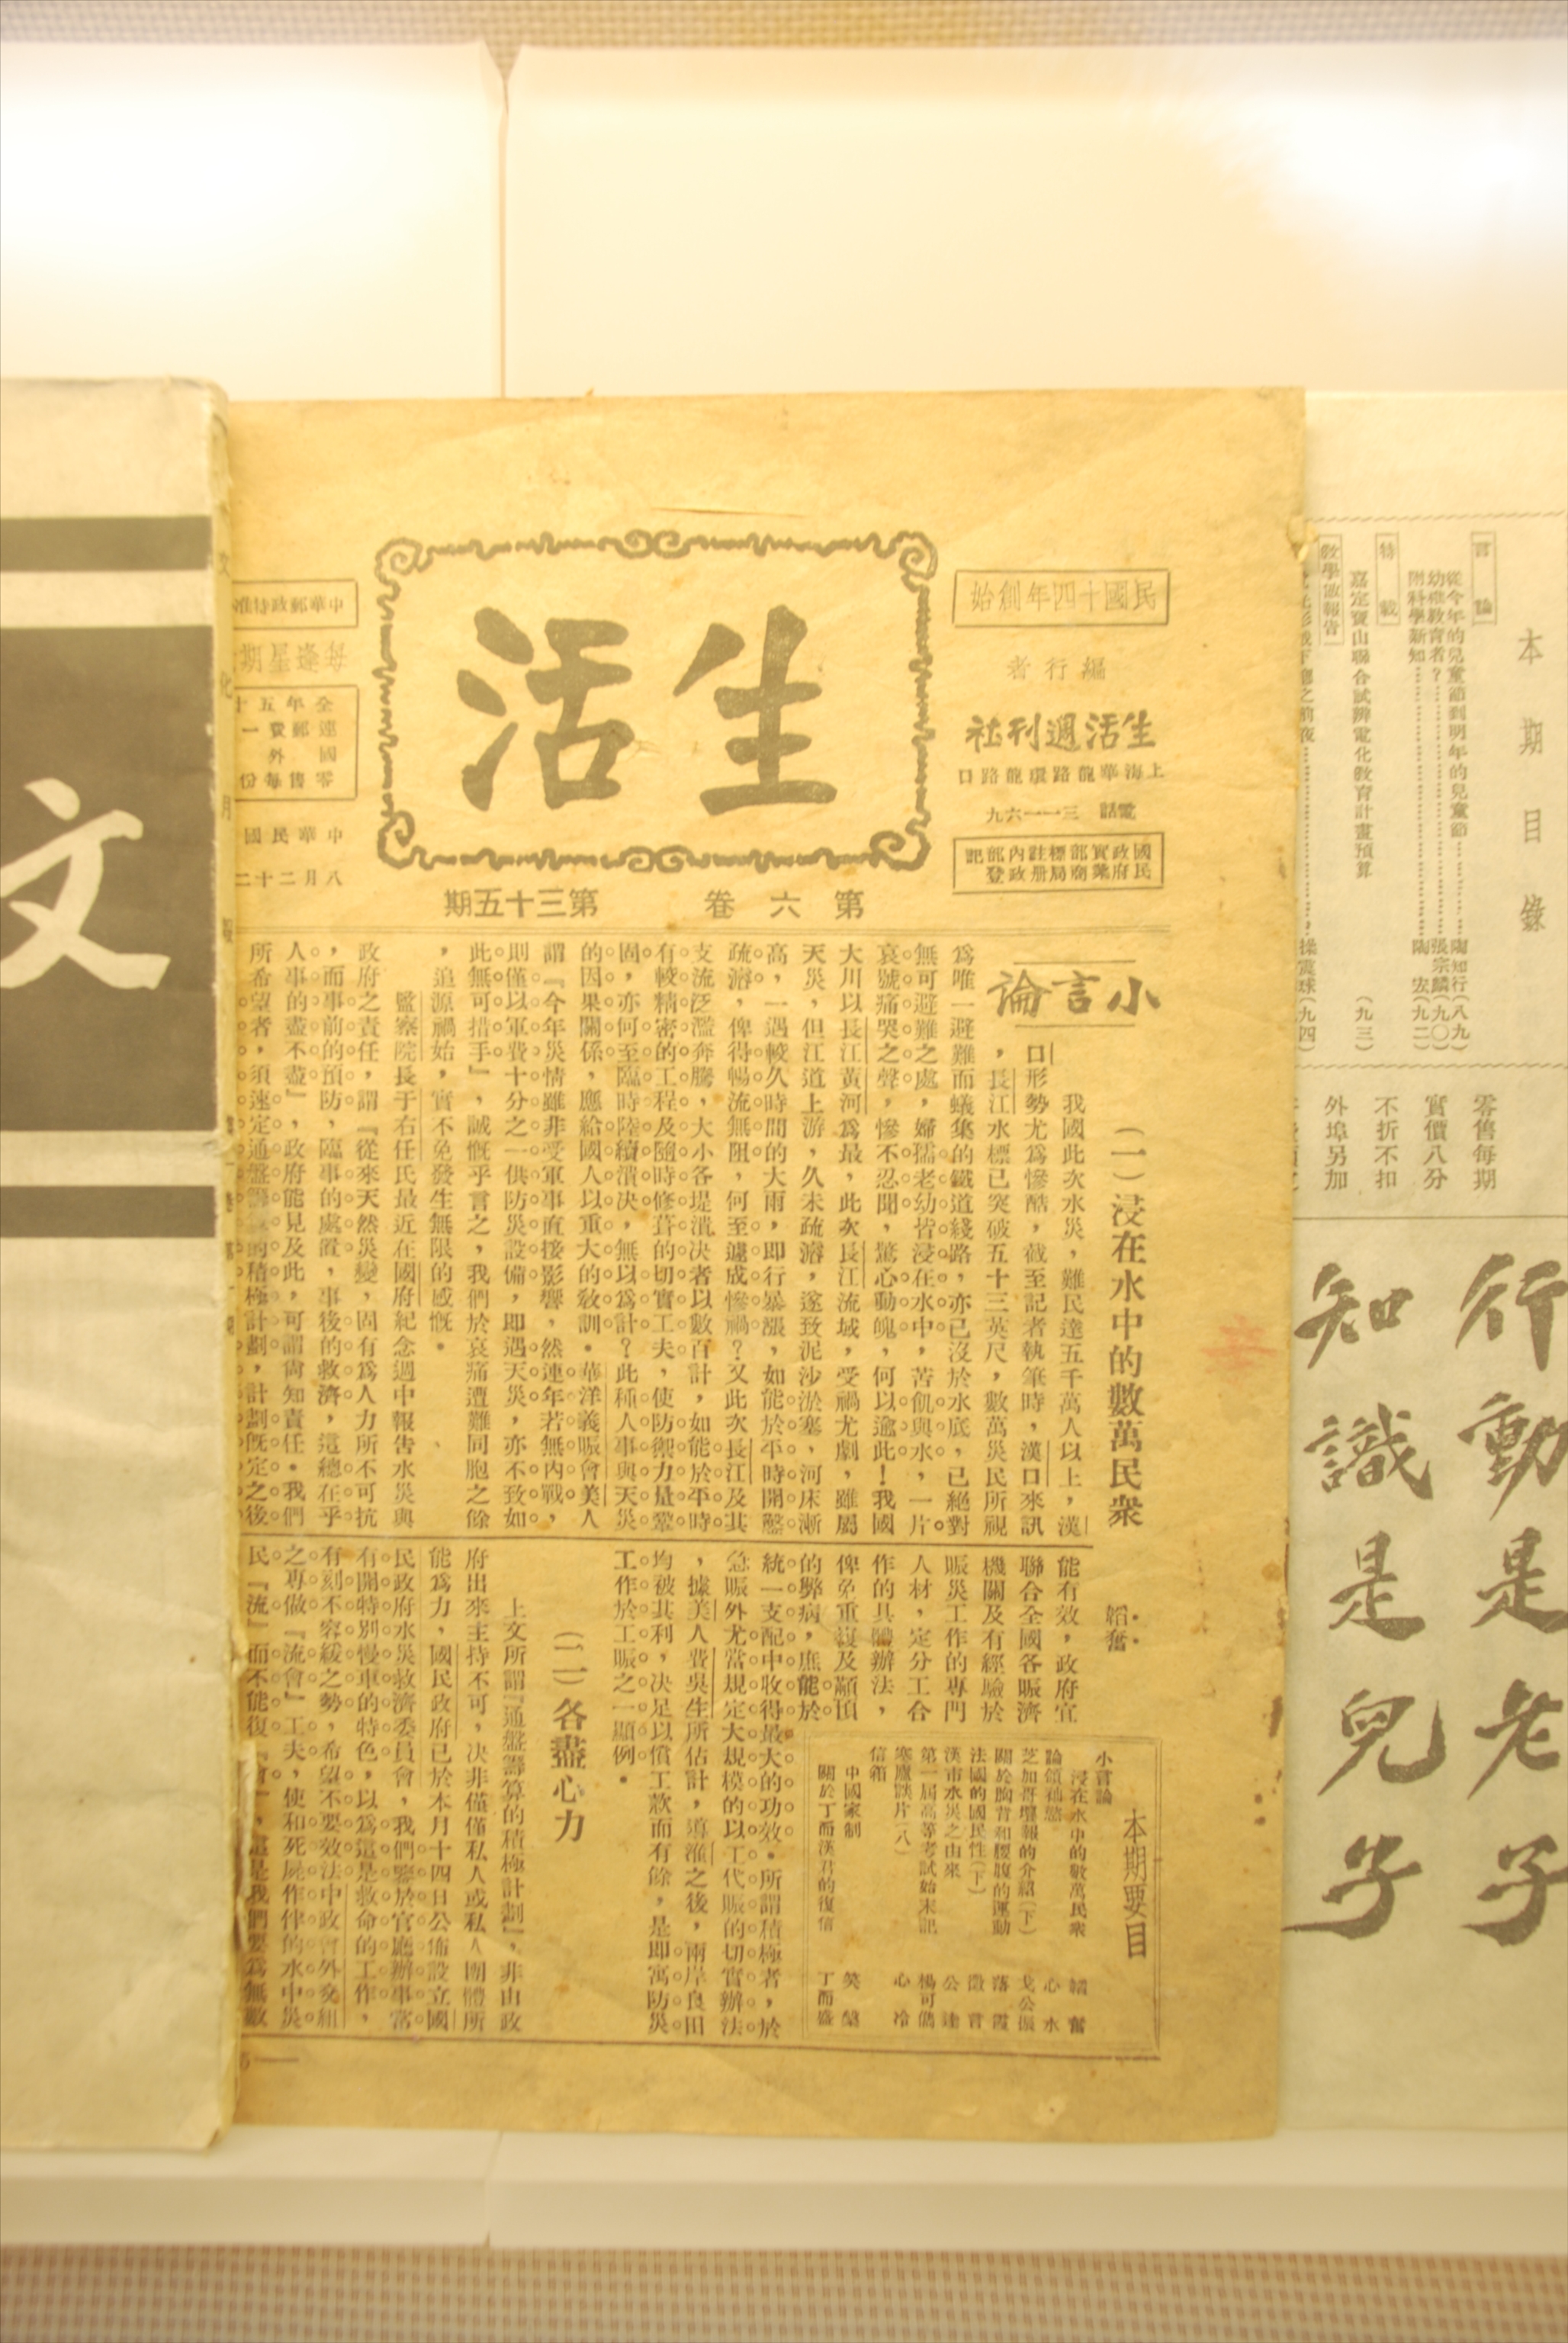 民國十四年創始
編行者
生活週刊社
上海華龍路環龍路口
電話 三一一六九
國民政府實業部商標局註冊內政部登記
生活
第六卷 第三十五期
中華郵政特准
每逢星期
全年五十
連郵費一
國外
零售每份
中華民國
八月二十二
小言論
(一)浸在水中的數萬民衆
我國此次水災,難民達五千萬人以上,漢
口形勢尤爲慘酷,截至記者執筆時,漢口來訊
,長江水標已突破五十三英尺,數萬災民所視
爲唯一避難而蟻集的鐵道綫路,亦已沒於水底,已絕對
無可避難之處,婦孺老幼皆浸在水中,苦飢與水,一片
哀號痛哭之聲,慘不忍聞,驚心動魄,何以逾此!我國
大川以長江黃河爲最,此次長江流域,受禍尤劇,雖屬
天災,但江道上游,久未疏濬,遂致泥沙淤塞,河床漸
高,一遇較久時間的大雨,即行暴漲,如能於平時開鑿
疏濬,俾得暢流無阻,何至遽成慘禍?又此次長江及其
支流泛濫奔騰,大小各堤潰決者以數百計,如能於平時
有較精密的工程及隨時修葺的切實工夫,使防禦力量鞏
固,亦何至臨時陸續潰決,無以爲計?此種人事與天災
的因果關係,應給國人以重大的敎訓。華洋義賑會美人
謂『今年災情雖非受軍事直接影響,然連年若無內戰,
則僅以軍費十分之一供防災設備,即遇天災,亦不致如
此無可措手』,誠慨乎言之,我們於哀痛遭難同胞之餘
,追源禍始,實不免發生無限的感慨。
監察院長于右任氏最近在國府紀念週中報告水災與
政府之責任,謂『從來天然災變,固有爲人力所不可抗
,而事前的預防,臨事的處置,事後的救濟,這總在乎
人事的盡不盡』,政府能見及此,可謂尙知責任。我們
所希望者,須速定通盤籌算的積極計劃,計劃旣定之後
韜奮
能有效,政府宜
聯合全國各賑濟
機關及有經驗於
賑災工作的專門
人材,定分工合
作的具體辦法,
俾免重複及顢頇
的弊病,庶能於
統一支配中收得最大的功效。所謂積極者,於
急賑外尤當規定大規模的以工代賑的切實辦法
,據美人費吳生所估計,導淮之後,兩岸良田
均被其利,决足以償工款而有餘,是即寓防災
工作於工賑之一顯例。
(二)各盡心力
上文所謂『通盤籌算的積極計劃』,非由政
府出來主持不可,决非僅僅私人或私人團體所
能爲力,國民政府已於本月十四日公佈設立國
民政府水災救濟委員會,我們鑒於官廳辦事常
有開特別慢車的特色,以爲這是救命的工作,
有刻不容緩之勢,希望不要效法中政會外交組
之專做『流會』工夫,使和死屍作伴的水中災
民『流』而不能復『會』,這是我們要爲無數
本期要目
小言論
浸在水中的數萬民衆 韜奮
論領袖慾 心水
芝加哥壇報的介紹(下) 戈公振
關於胸背和腰腹的運動 落霞
法國的國民性(下)
漢市水災之由來 公達
第一屆高等考試始末記 楊可僞
寒鷹談片(八) 心冷
信箱
中國家制 笑槃
關於丁而漢君的復信 丁而盛
文
文化月報
本期目錄
言論
從今年的兒童節到明年的兒童節……陶知行(八九)
幼稚教育者?……張宗麟(九〇)
附科學新知……陶宏(九二)
特載
嘉定寶山聯合試辦電化教育計畫預算(九三)
教學做報告
之前夜……操震球(九四)
零售每期
實價八分
不折不扣
外埠另加
行動是老子
知識是兒子